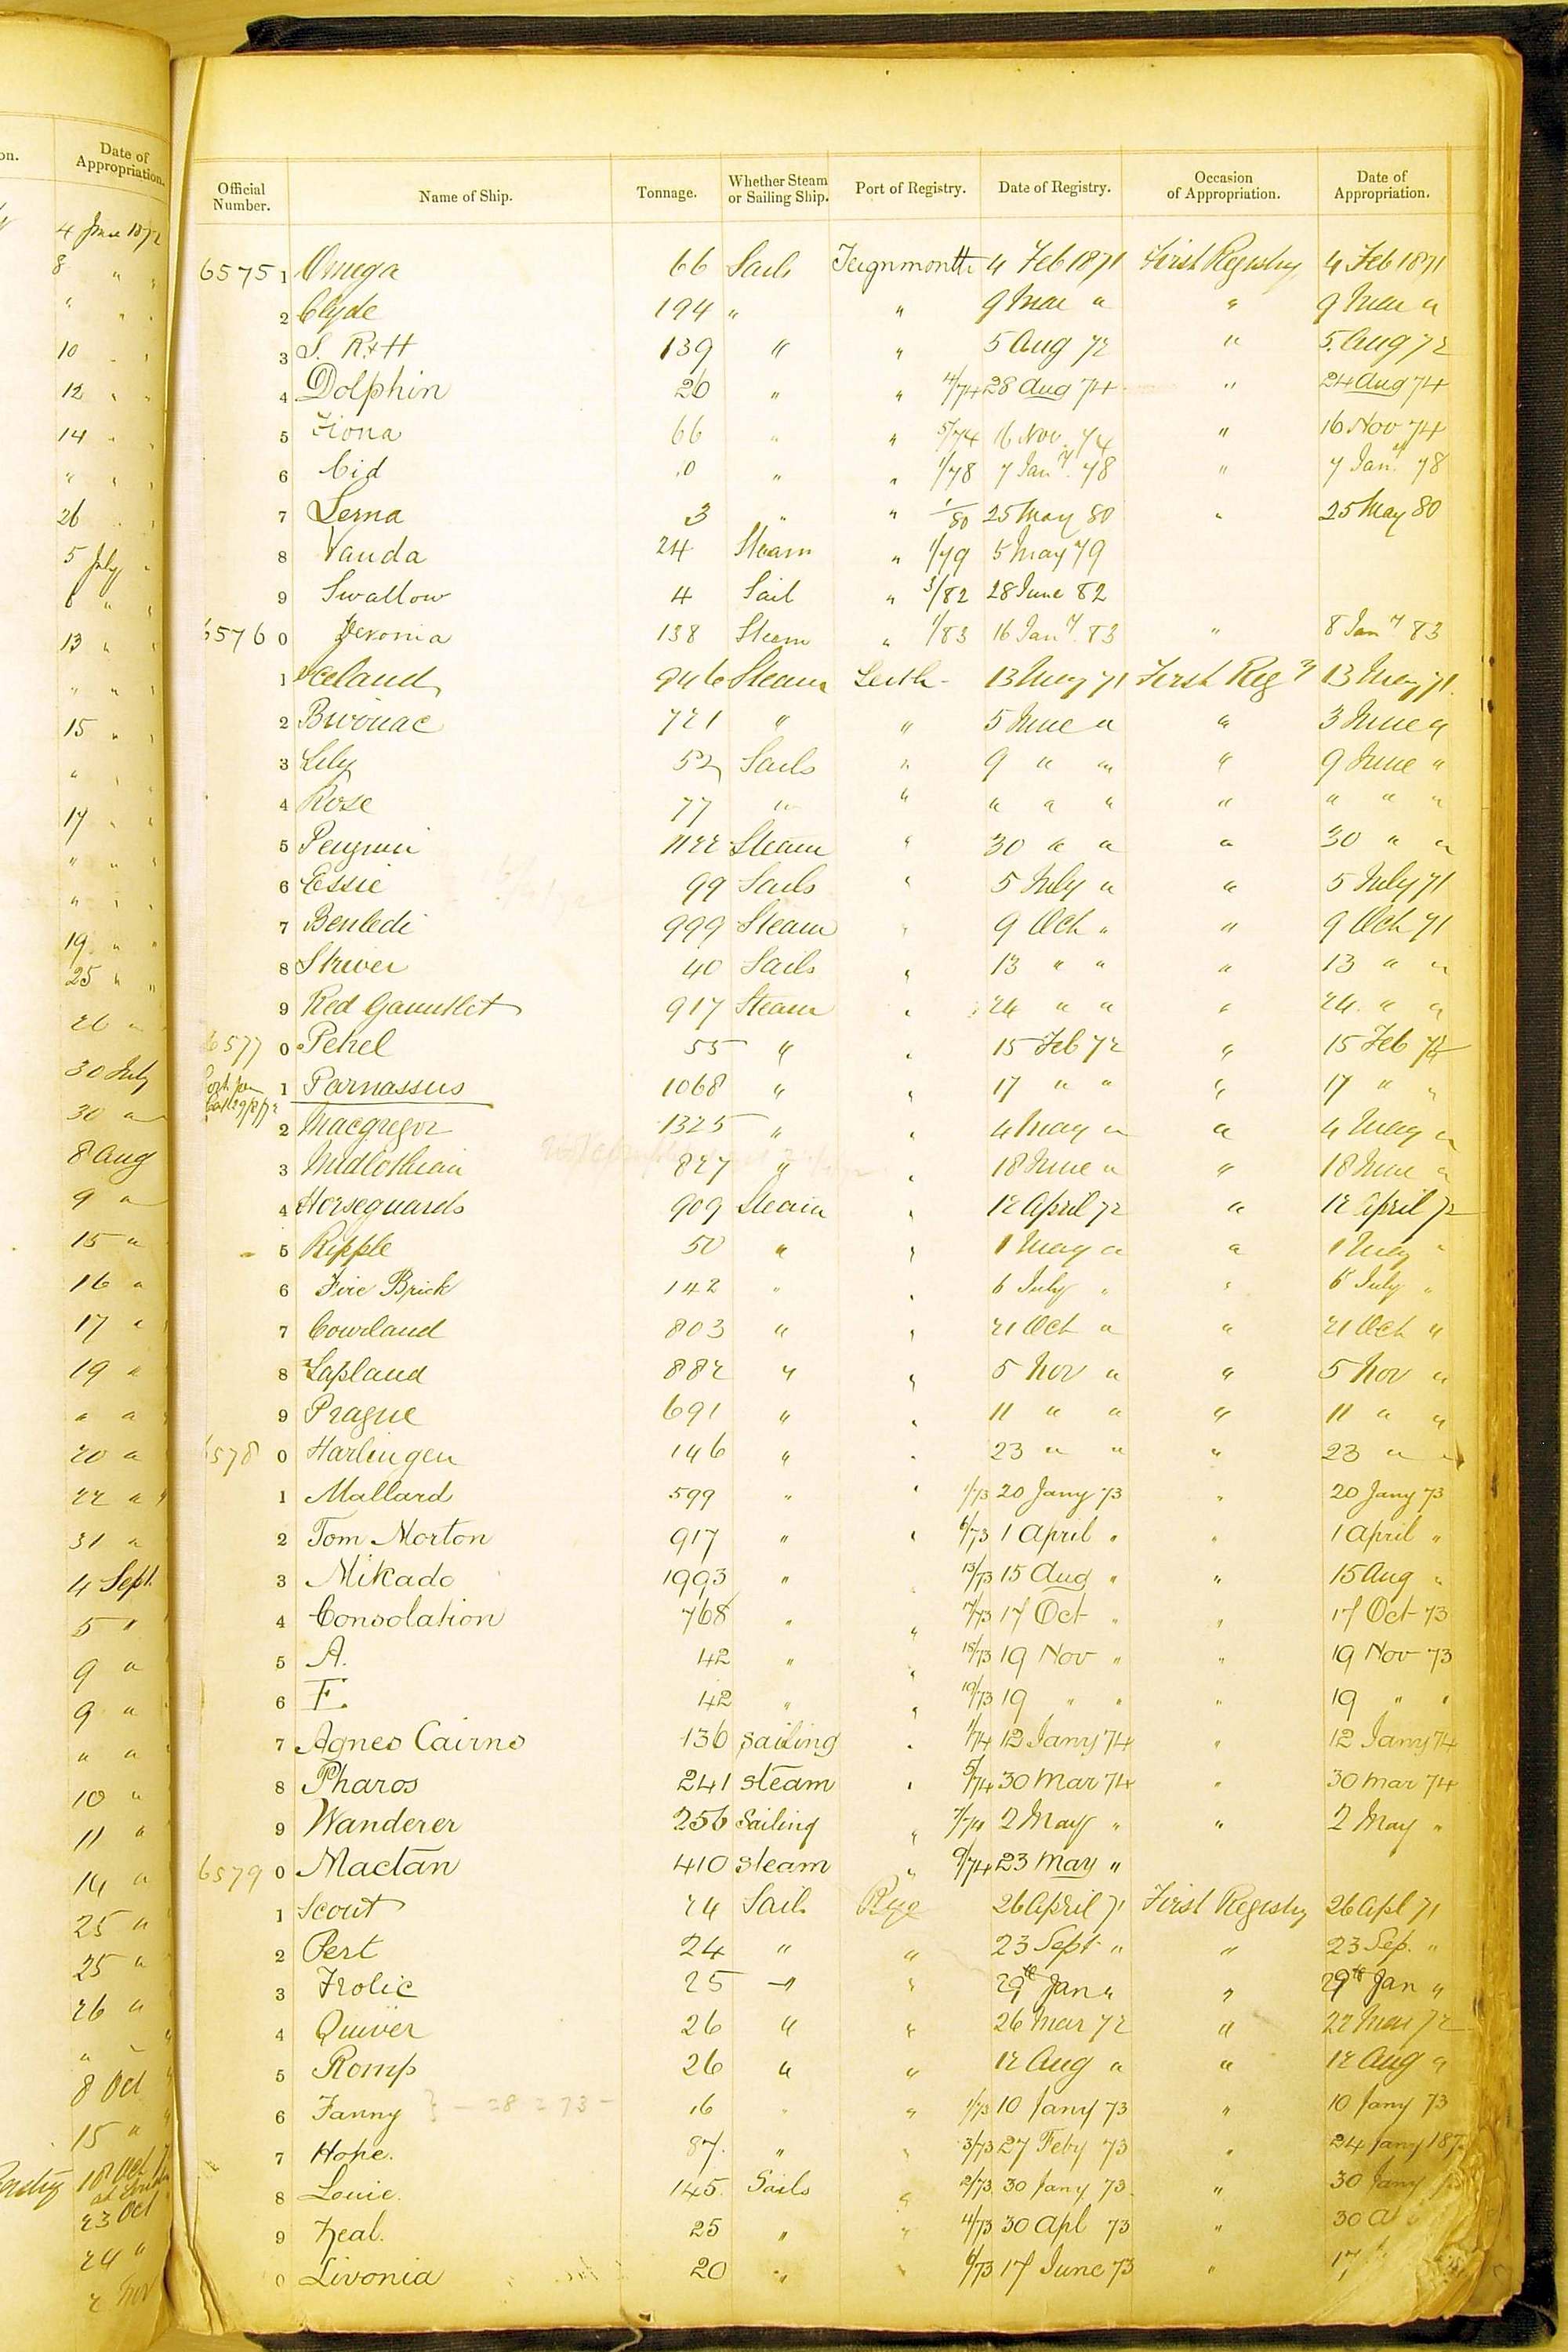 on.
Date of Appropriation.
4 June 1872
8 " "
" " "
10 " "
12 " "
14 " "
" " "
26 " "
5 July "
6 " "
13 " "
" " "
15 " "
" "
17 " "
" " "
" " "
19 " "
25 " "
26 "
30 July
30 "
8 Aug
9 "
15 "
16 "
17 "
19 "
" "
20 "
22 " "
31 "
4 Sept.
5 "
9 "
9 "
" "
10 "
11 "
14 "
25 "
25 "
26 "
" "
8 Oct
15 "
18 Oct
23 Oct
24 "
2 Nov
Official Number. Name of Ship. Tonnage. Whether Steam or Sailing Ship. Port of Registry. Date of Registry. Occasion of Appropriation. Date of Appropriation.
6575 1 Omega 66 Sails Teignmouth 4 Feb 1871 First Registry 4 Feb 1871
2 Clyde 194 " " 9 Mar " " 9 Mar "
3 S. R & H 139 " " 5 Aug 72 " 5. Aug 72
4 Dolphin 26 " " 4/74 28 Aug 74 " 24 Aug 74
5 Fiona 66 " " 5/74 16 Nov. 74 " 16 Nov 74
6 Cid " " 1/78 7 Jany. 78 " 7 Jany. 78
7 Lerna 3 " " 1/80 25 May 80 " 25 May 80
8 Vanda 24 Steam " 1/79 5 May 79
9 Swallow 4 Sail " 3/82 28 June 82
6576 0 Devonia 138 Steam " 1/83 16 Jany. 83 " 8 Jany 83
1 Iceland 946 Steam Leith 13 May 71 First Regy 13 May 71.
2 Bivouac 721 " " 5 June " " 3 June "
3 Lily 52 Sails " 9 " " " 9 June "
4 Rose 77 " " " " " " " " "
5 Penguin 1122 Steam " 30 " " " 30 " "
6 Essie 99 Sails " 5 July " " 5 July 71
7 Benledi 999 Steam " 9 Oct " " 9 Oct 71
8 Striver 40 Sails " 13 " " " 13 " "
9 Red Gauntlet 917 Steam " 24 " " " 24. " "
6577 0 Pehel 55 " " 15 Feb 72 " 15 Feb 72
1 Parnassus 1068 " " 17 " " " 17 " "
2 Macgregor 1325 " " 4 May " " 4 May "
3 Midlothian 827 " " 18 June " " 18 June "
4 Horseguards 909 Steam " 12 April 72 " 12 April 72
5 Ripple 50 " " 1 May " " 1 May "
6 Fire Brick 142 " " 6 July " " 6 July "
7 Courland 803 " " 21 Oct " " 21 Oct "
8 Lapland 882 " " 5 Nov " " 5 Nov "
9 Prague 691 " " 11 " " " 11 " "
6578 0 Harlingen 146 " " 23 " " " 23 " "
1 Mallard 599 " " 1/73 20 Jany 73 " 20 Jany 73
2 Tom Morton 917 " " 6/73 1 April " " 1 April "
3 Mikado 1993 " " 13/73 15 Aug " " 15 Aug "
4 Consolation 768 " " 17/73 17 Oct " " 17 Oct 73
5 A. 42 " " 18/73 19 Nov " " 19 Nov 73
6 F. 42 " " 19/73 19 " " " 19 " "
7 Agnes Cairns 136 sailing " 1/74 12 Jany 74 " 12 Jany 74
8 Pharos 241 steam " 5/74 30 Mar 74 " 30 mar 74
9 Wanderer 256 Sailing " 7/74 2 May " " 2 May "
6579 0 Mactan 410 steam " 9/74 23 may "
1 Scout 24 Sail Rye 26 April 71 First Registry 26 Apl 71
2 Pert 24 " " 23 Sept " " 23 Sep. "
3 Frolic 25 " " 29th Jan " " 29th Jan "
4 Quiver 26 " " 26 Mar 72 " 22 Mar 72
5 Romp 26 " " 12 Aug " " 12 Aug "
6 Fanny } - 28 2 73 - 16 " " 1/73 10 Jany 73 " 10 Jany 73
7 Hope. 87. " " 3/73 27 Feby 73 " 24 Jany 187
8 Louie. 145. Sails " 2/73 30 Jany 73. " 30 Jany
9 Zeal. 25 " " 4/73 30 Apl 73 " 30 A
0 Livonia 20 " " 6/73 17 June 73 " 17